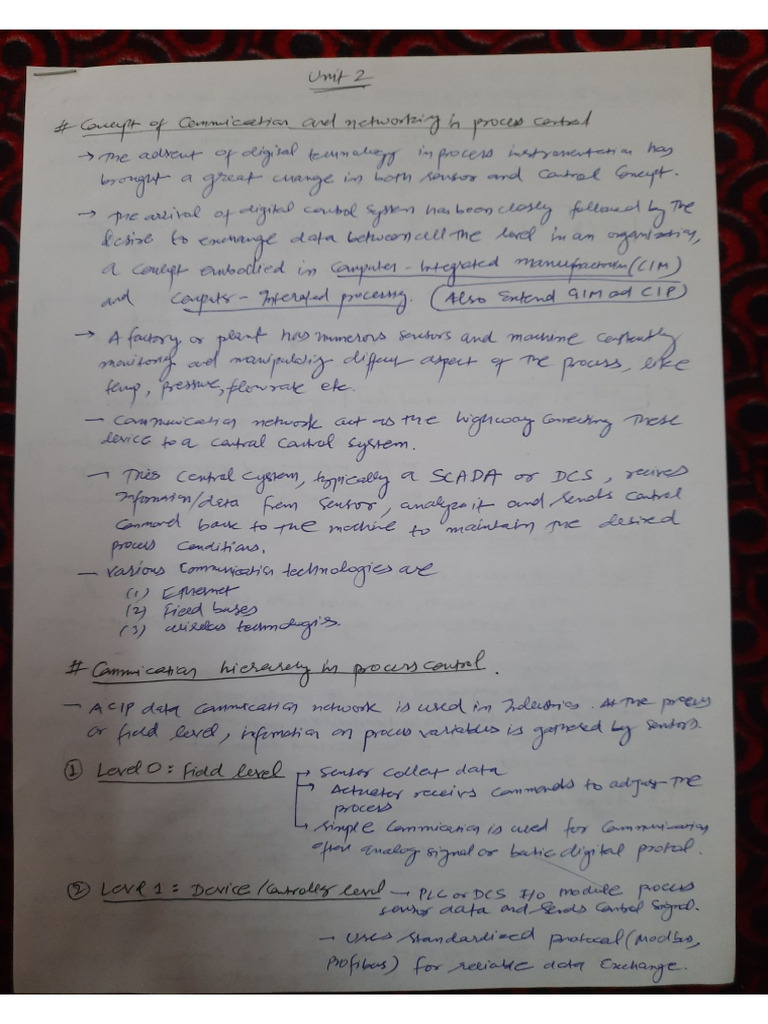 Unit 2
# Concept of Commucation and networking in process control
→ The advent of digital technology in process instrumentation has
brought a great change in both sensor and control concept.
→ The arrival of digital control system has been closly followed by the
desire to exchange data between all the level in an organization,
a concept embodied in Computer-Integrated manufacturin (CIM)
and Computer-Interated processing. (Also Extend CIM ad CIP)
→ A factory or plant has numerous sensors and machine constantly
monitoring and manipulating diffent aspect of the process, like
temp, pressure, flow rate etc.
- Communication network act as the highway connecting these
device to a central control system.
- This central cystem, typically a SCADA or DCS, recives
information/data from sensor, analyze it and sends control
command back to the machine to maintain the desired
process conditions.
- various Communication technologies are
(1) Ethernet
(2) Field bases
(3) wireless technologies.
# Commication hierarchy in process control.
- A CIP data communication network is used in Industries. At the process
or field level, information on process variables is gathered by sensors.
① Level 0: Field level → Sensor collect data
→ Actuator receives commands to adjust the
process
→ Simple commication is used for communication
often analog signal or basic digital protocal.
② Level 1: Device/Controller level → PLC or DCS I/O module process
sensor data and sends control signal.
- Uses standardized protocal (Modbus,
Profibus) for reliable data exchange.